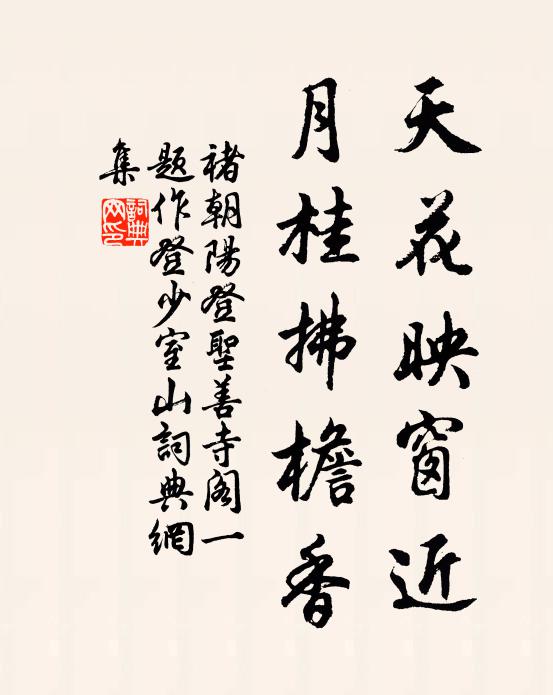 天花映窗近
月桂拂檐香
褚朝陽登聖善寺閣一
題作登少室山詞典網
集
詞典網印